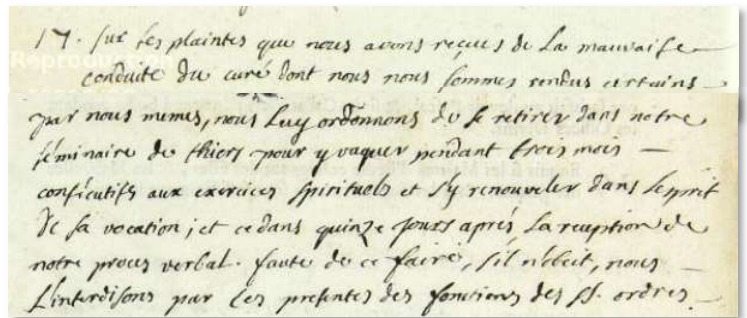 17. sur les plaintes que nous avons reçues de la mauvaise
conduite du curé dont nous nous sommes rendus certains
par nous memes, nous luy ordonnons de se retirer dans notre
séminaire de thiers pour y vaquer pendant trois mois
consécutifs aux exercices spirituels et s'y renouveler dans l'esprit
de sa vocation ; et ce dans quinze jours aprés la reception de
notre proces verbal. faute de ce faire, s'il n'obeit, nous
L'interdisons par les presentes des fonctions des SS. ordres